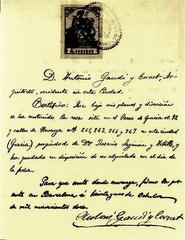 D. Antonio Gaudí y Cornet, Ar-
quitecto, residente en esta Ciudad.
Certifico: Que bajo mis planos y dirección
se ha construido la casa sita en el Paseo de Gracia nº 92
y calles de Provenza nº 261, 263, 265 y 267 en esta ciudad
(Gracia) propiedad de Dª Rosario Segimon y Artells, y
ha quedado en disposición de ser alquilada en el día de
la fecha.
Para que conste donde convenga, firmo la pre-
sente en Barcelona á de Octubre
de mil novecientos doce.
Antoni Gaudí y Cornet